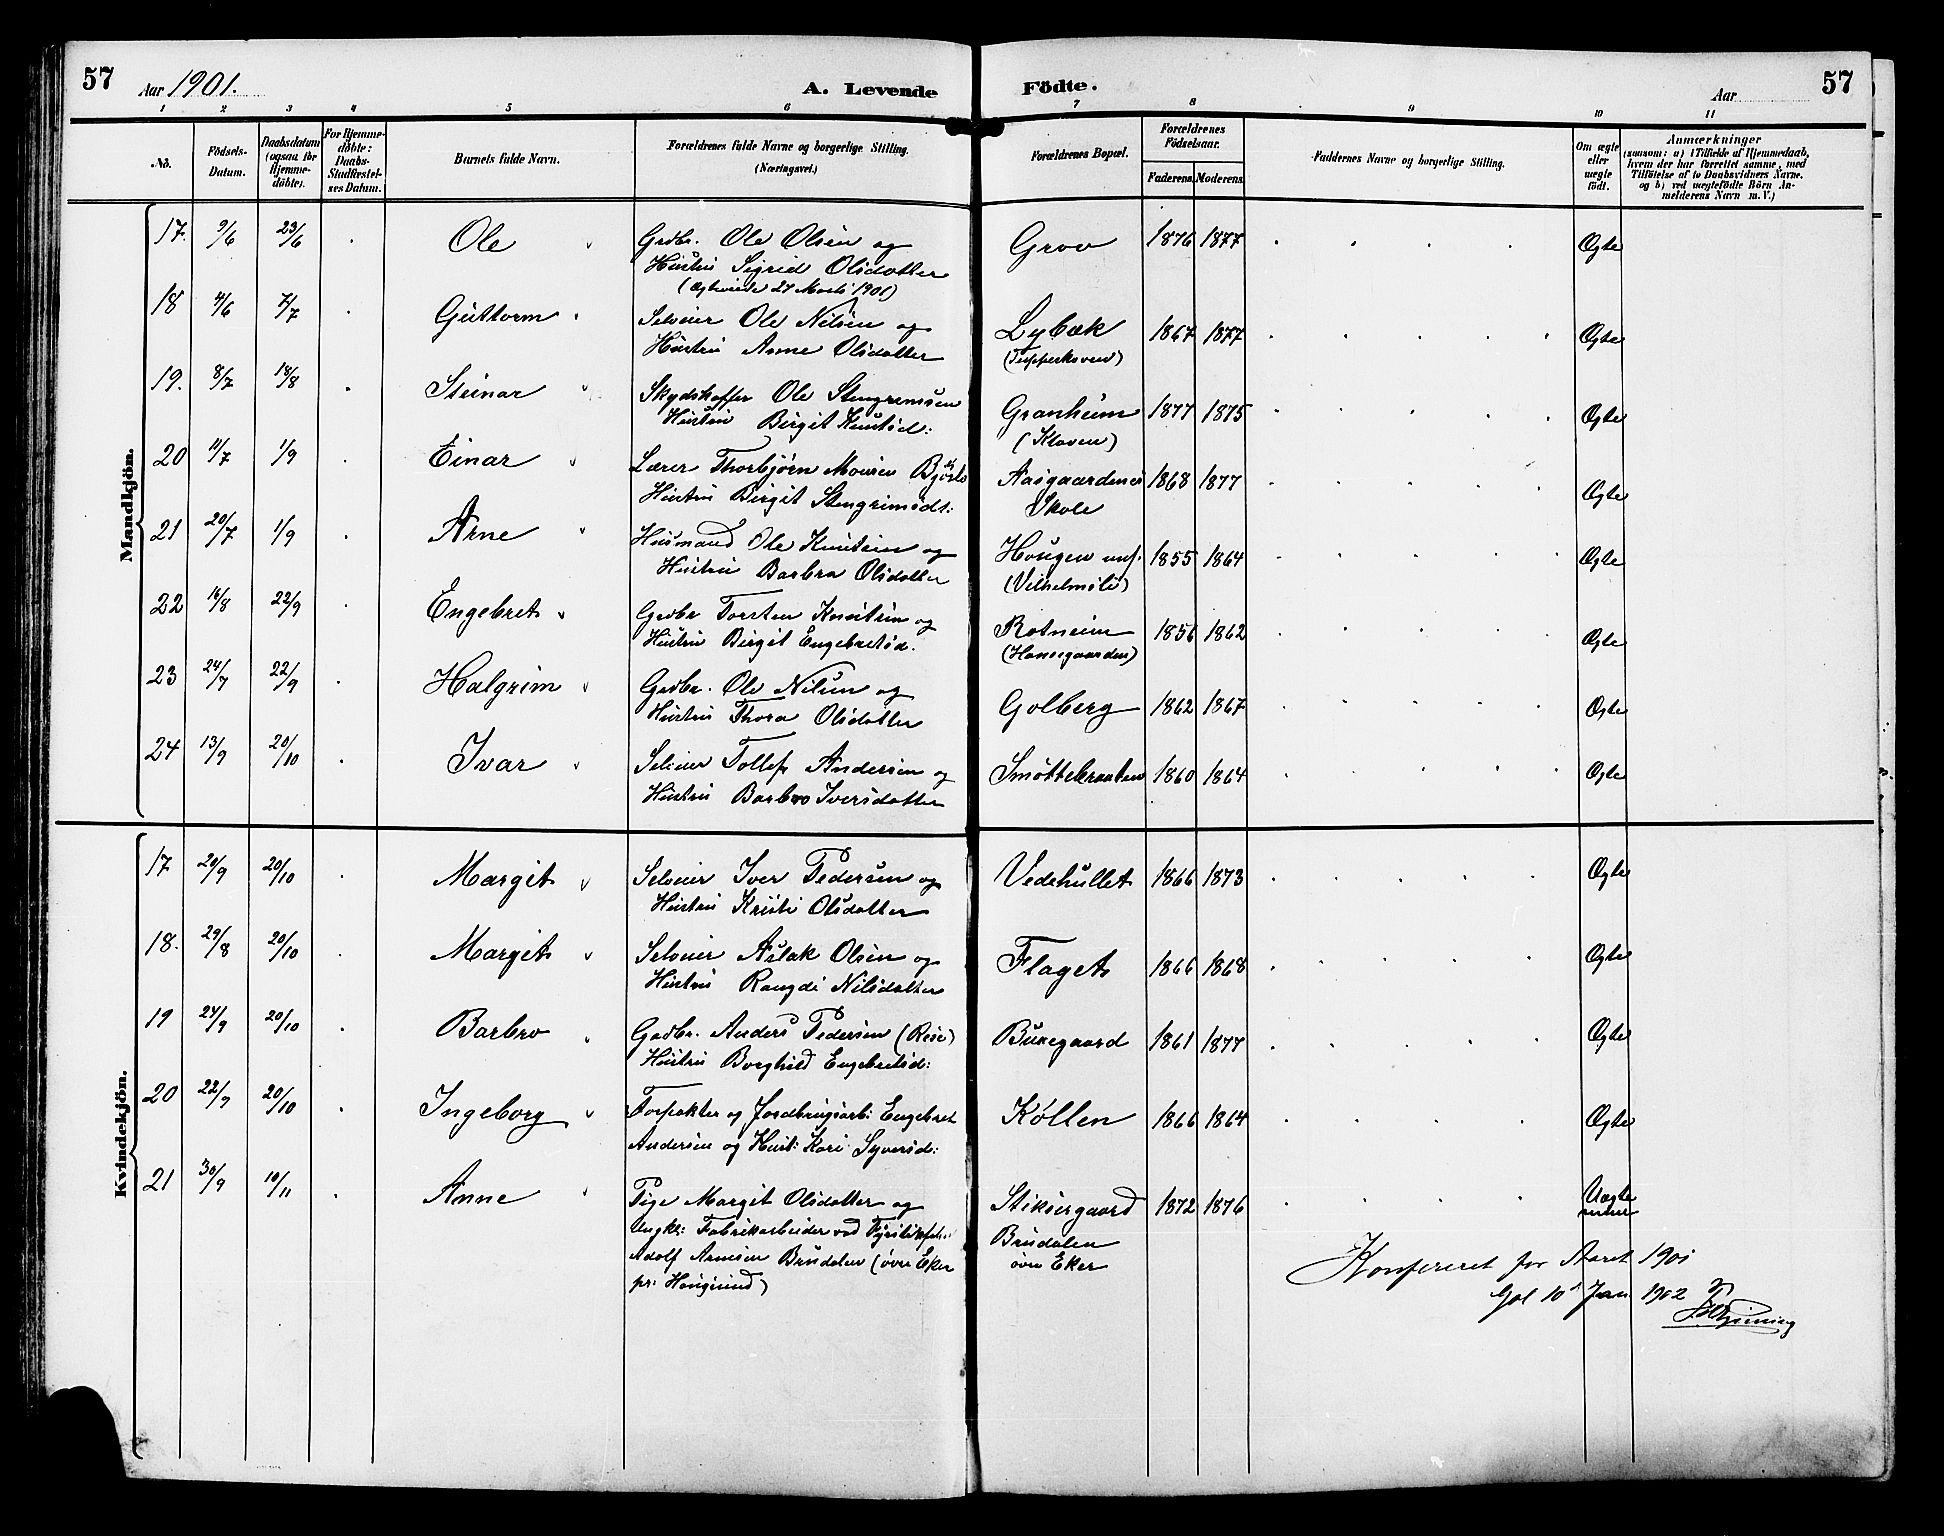 57
Aar 1901.
A. Levende
Födte.
Aar
57
1 2 3 4 5 6 7 8 9 10 11
No.
Födsels-Datum.
Daabsdatum (ogsaa for Hjemme-döbte).
For Hjemme-döbte: Daabs-Stadfæstel-ses Datum.
Barnets fulde Navn.
Forældrenes fulde Navne og borgerlige Stilling. (Næringsvei.)
Forældrenes Bopæl.
Forældrenes Födselsaar.
Faderens. Moderens.
Faddernes Navne og borgerlige Stilling.
Om ægte eller uægte födt.
Anmærkninger
(saasom: a) i Tilfælde af Hjemmedaab, hvem der har forrettet samme, med Tilföielse af to Daabsvidners Navne, og b) ved uægtefödte Börn An-melderens Navn m. V.)
Mandkjön.
17. 9/6 23/6 Ole Grdbr. Ole Olsen og Grov 1876 1877 Ægte
Hustru Sigrid Olsdatter
(Ægteviede 27 Marts 1901)
18 4/6 7/7 Guttorm Selveier Ole Nilsen og Lybæk 1867 1877 Ægte
Hustru Anne Olsdatter (Tupperhoven)
19. 8/7 18/8 Steinar Skydskaffer Ole Stengrimsen Granheim 1877 1875 Ægte
Hustru Birgit Knutsd: (Kloven)
20 11/7 1/9 Einar Lærer Thorbjørn Monsen Aasgaardenes 1868 1877 Ægte
Hustru Birgit Stengrimsdt: Skole
21 20/7 1/9 Arne Husmand Ole Knutsen og Hougen 1855 1864 Ægte
Hustru Barbra Olsdatter (Vilhelmsli)
22 16/8 22/9 Engebret Grdbr Torsten Knutsen og Rotneim 1856 1862 Ægte
Hustru Birgit Engebretsd. (Hansegaarden)
23 24/7 22/9 Halgrim Grdbr. Ole Nilsen og Golberg 1862 1867 Ægte
Hustru Thora Olsdatter
24 13/9 20/10 Ivar Selveier Tollef Andersen og Smøttebraaten 1860 1864 Ægte
Hustru Barbro Iversdatter
Kvindekjön.
17 20/9 20/10 Margit Selveier Iver Pedersen og Vedehullet 1866 1873 Ægte
Hustru Kristi Olsdatter
18. 29/8 20/10 Margit Selveier Aslak Olsen og Flaget 1866 1868 Ægte
Hustru Rangdi Nilsdatter
19 24/9 20/10 Barbro Grdbr. Anders Pedersen (Rise) Bunegaard 1861 1877 Ægte
Hustru Borghild Engebretsd:
20 22/9 20/10 Ingeborg Forpakter og Jordbrugsarb: Engebret Køllen 1866 1864 Ægte
Andersen og Hust: Kari Syversd:
21 30/9 10/11 Anne Pige Margit Olsdatter og Stiksergaard 1872 1876 Uægte
Ungkr: Fabrikarbeider ved Brudalen
Adolf Arnesen Brudalen (øvre Eker øvre Eker
pr: Hougsund)
Konfereret for Aaret 1901
Gol 10d Jan 1902